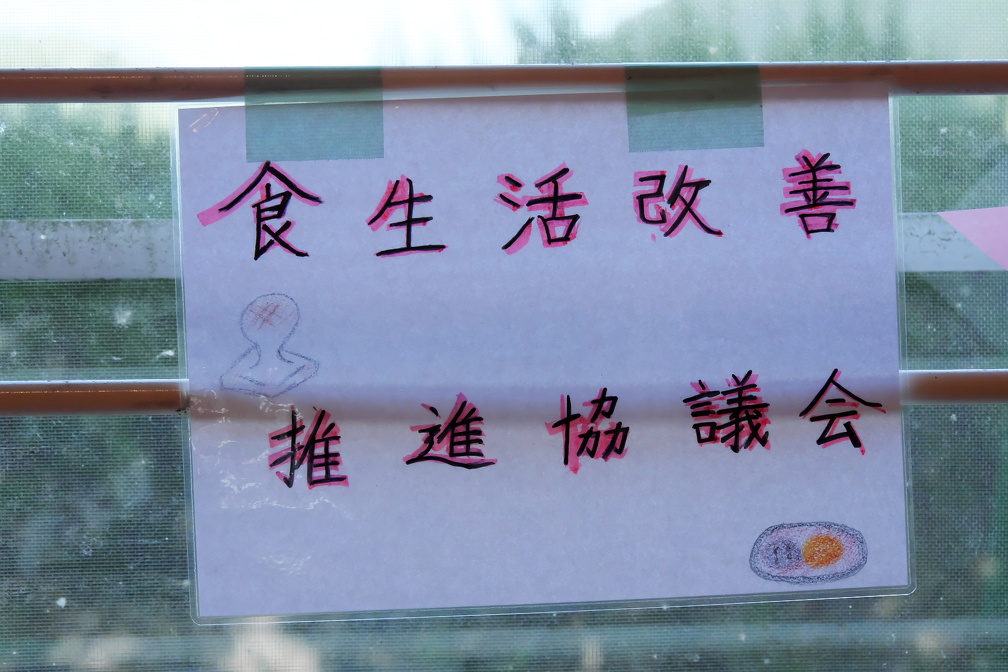 食生活改善
推進協議会